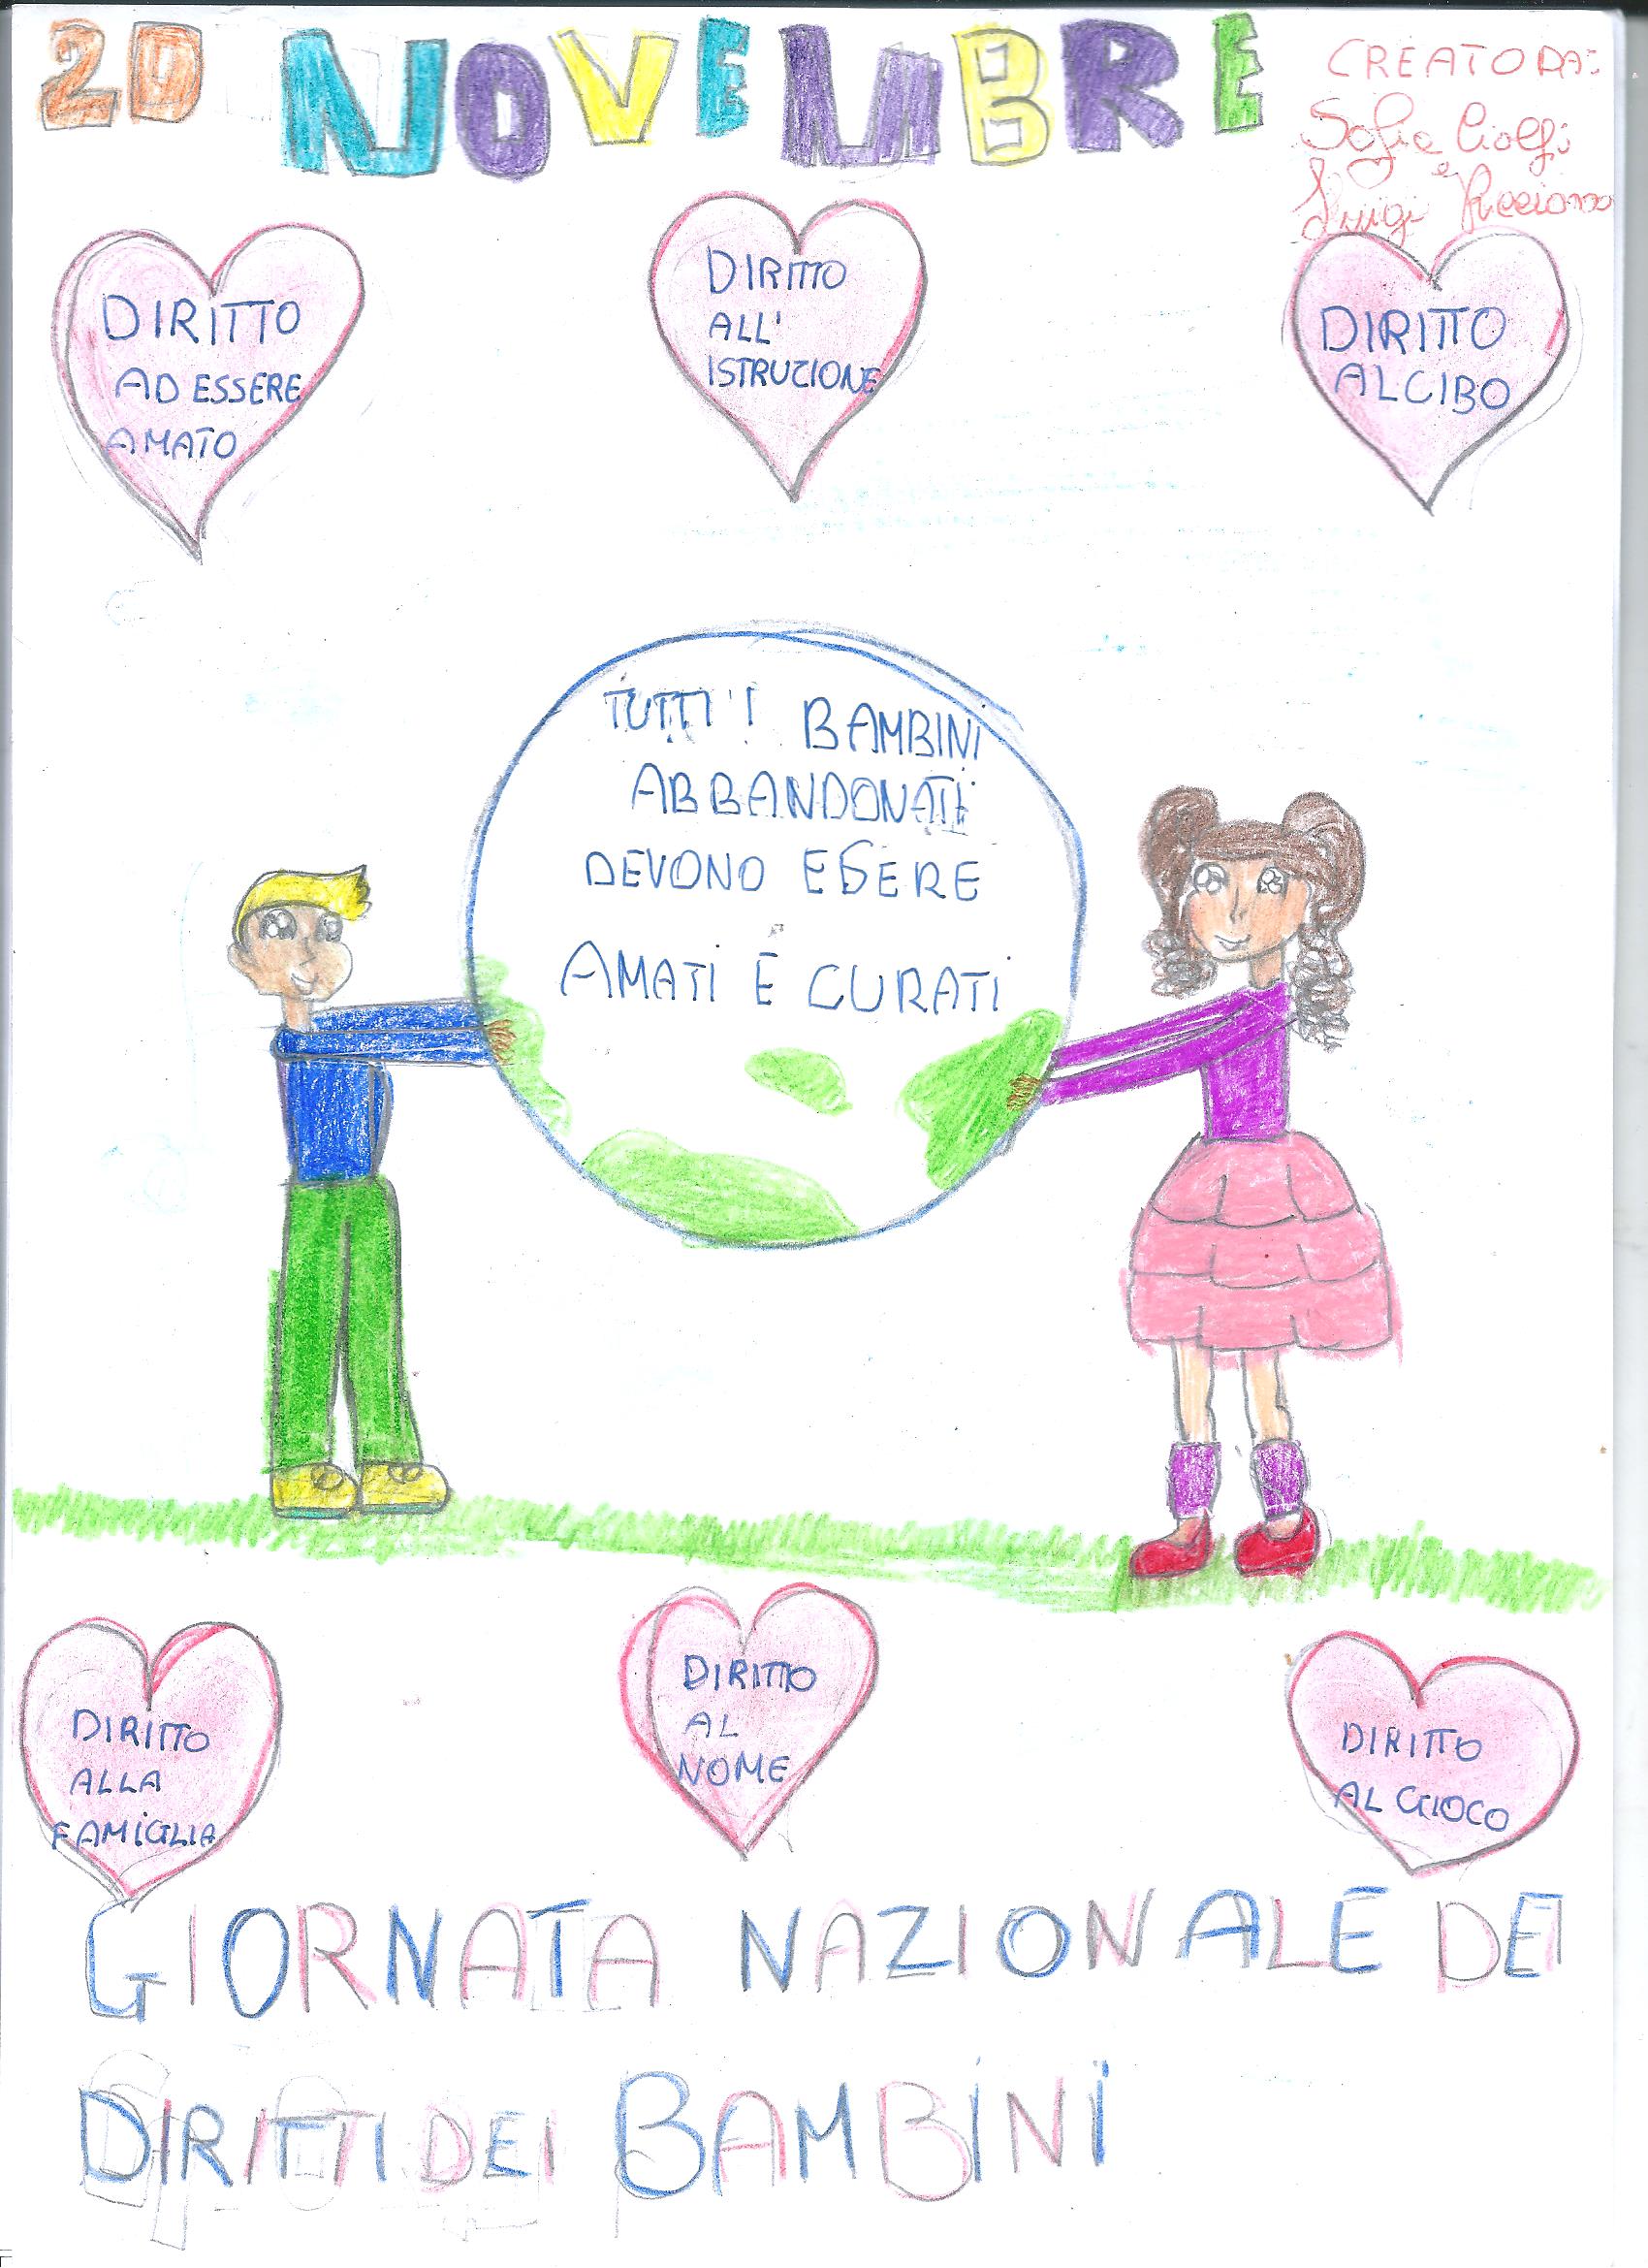 20 NOVEMBRE
CREATO DA:
Sofia Ciolfi
e
Luigi
DIRITTO
AD ESSERE
AMATO
DIRITTO
ALL'
ISTRUZIONE
DIRITTO
AL CIBO
TUTTI I BAMBINI
ABBANDONATI
DEVONO ESSERE
AMATI E CURATI
DIRITTO
ALLA
FAMIGLIA
DIRITTO
AL
NOME
DIRITTO
AL GIOCO
GIORNATA NAZIONALE DEI
DIRITTI DEI BAMBINI